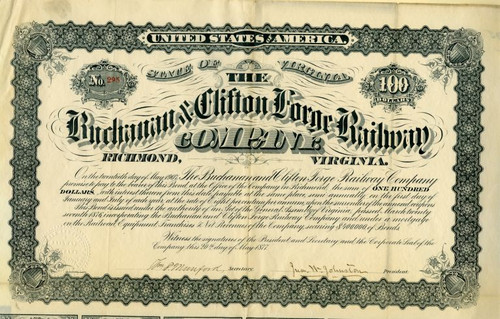 UNITED STATES OF AMERICA.
STATE OF VIRGINIA
No. 298
THE
100
DOLLARS
Buchanan & Clifton Forge Railway
COMPANY
RICHMOND, VIRGINIA.
On the twentieth day of May 1907, The Buchanan and Clifton Forge Railway Company
promises to pay to the bearer of this Bond at the Office of the Company in Richmond, the sum of ONE HUNDRED
DOLLARS, with interest thereon, payable at the same place semi-annually on the first day of
January and July of each year, at the rate of eight per centum per annum, when the
This Bond is issued under the authority of an Act of the General Assembly of Virginia, passed March twenty
seventh 1876, incorporating the Buchanan and Clifton Forge Railway Company and under a mortgage
on the Railroad Equipment, Franchises & Net Revenues of the Company, securing $400,000 of Bonds.
Witness the signatures of the President and Secretary and the Corporate Seal of the
Company this 20th day of May 1877.
Secretary Jno. W. Johnston President